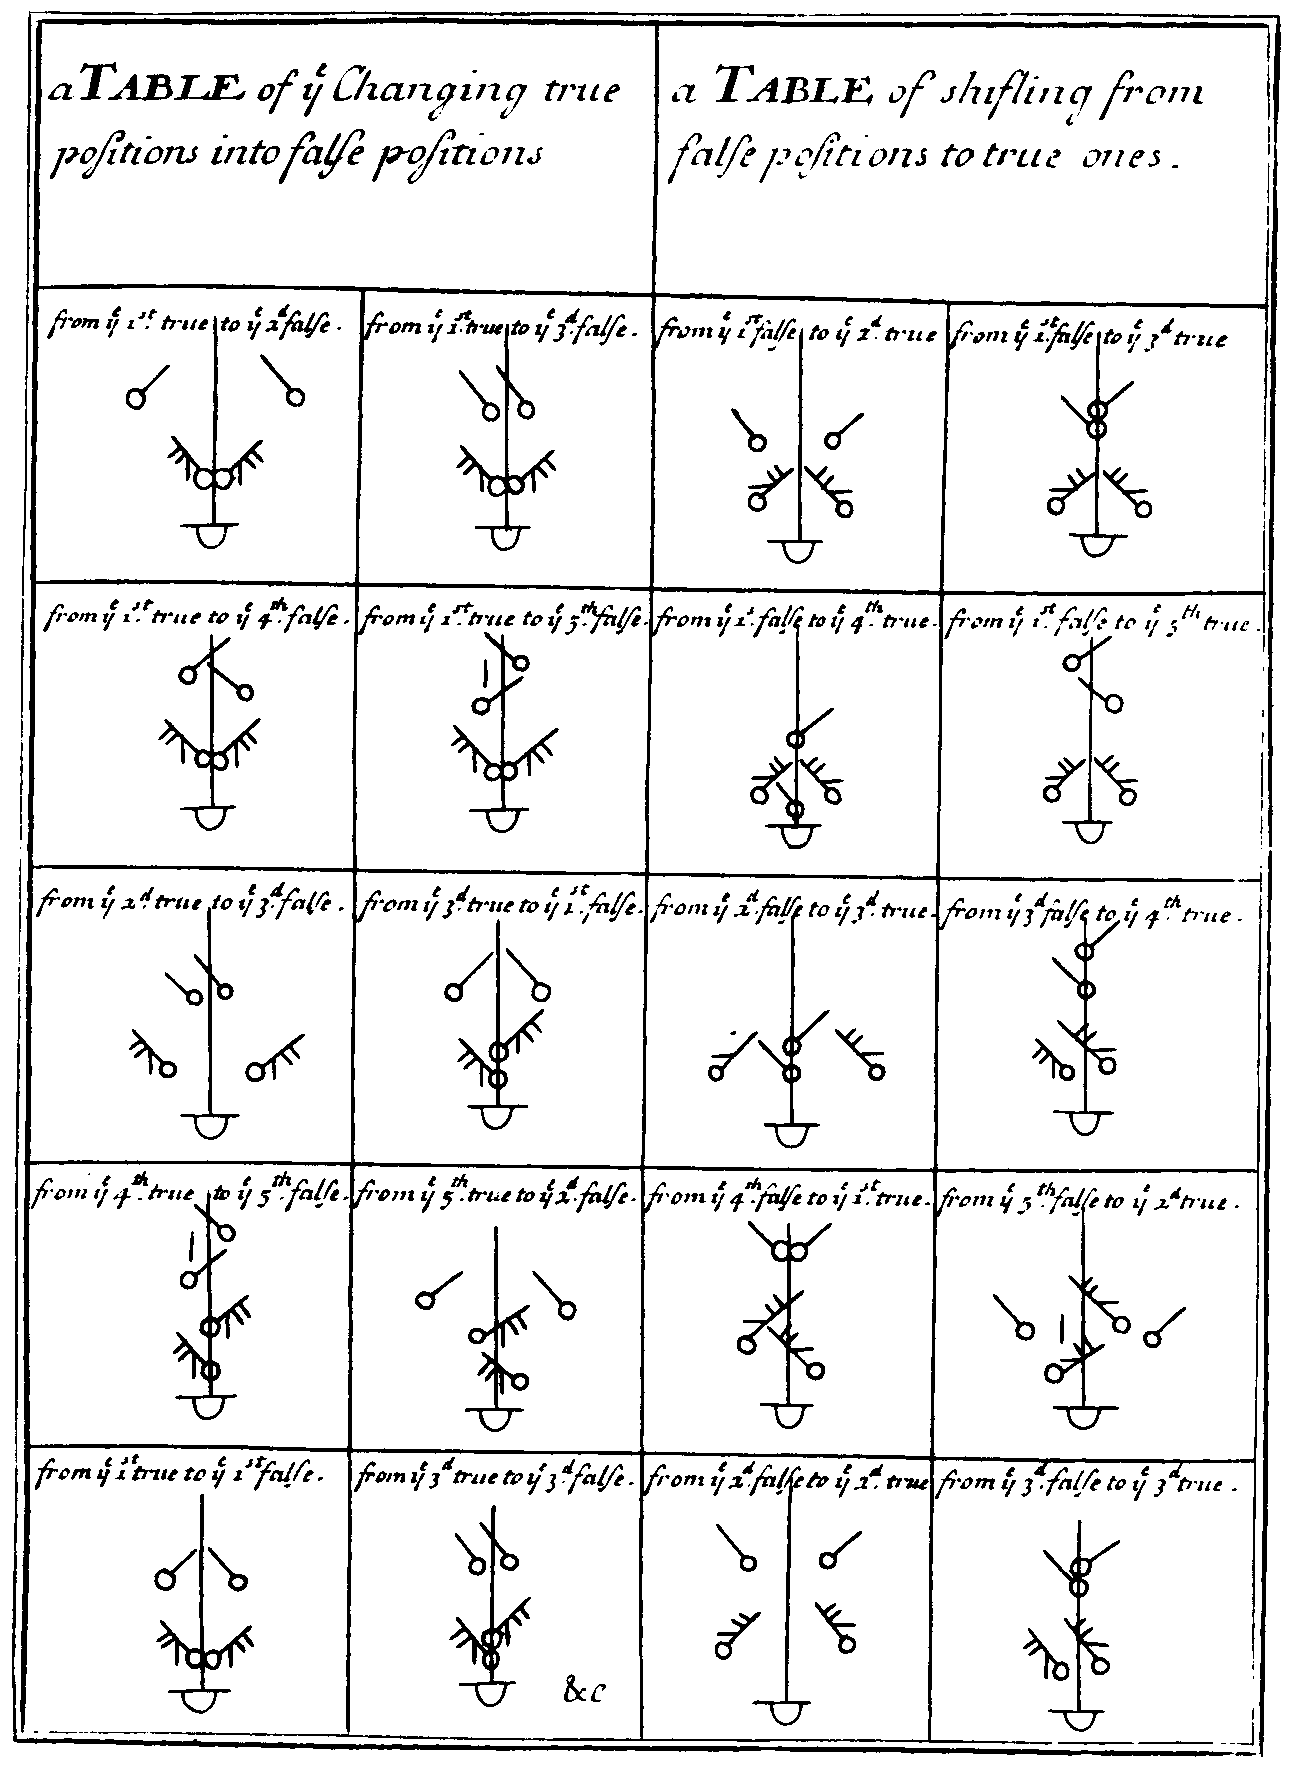 a TABLE of yͤ Changing true
poſitions into falſe poſitions
a TABLE of shifting from
falſe poſitions to true ones.
from yͤ 1ˢᵗ. true to yͤ 2ᵈ falſe.
from yͤ 1ˢᵗ. true to yͤ 3ᵈ. falſe.
from yͤ 1ˢᵗ falſe to yͤ 2ᵈ. true
from yͤ 1ˢᵗ. falſe to yͤ 3ᵈ true
from yͤ 1ˢᵗ. true to yͤ 4ᵗʰ. falſe.
from yͤ 1ˢᵗ. true to yͤ 5ᵗʰ. falſe.
from yͤ 1ˢ. falſe to yͤ 4ᵗʰ. true.
from yͤ 1ˢᵗ. falſe to yͤ 5ᵗʰ true.
from yͤ 2ᵈ. true to yͤ 3ᵈ. falſe.
from yͤ 3ᵈ. true to yͤ 1ˢᵗ. falſe.
from yͤ 2ᵈ. falſe to yͤ 3ᵈ. true.
from yͤ 3ᵈ falſe to yͤ 4ᵗʰ true.
from yͤ 4ᵗʰ. true to yͤ 5ᵗʰ. falſe.
from yͤ 5ᵗʰ. true to yͤ 2ᵈ. falſe.
from yͤ 4ᵗʰ. falſe to yͤ 1ˢᵗ. true.
from yͤ 5ᵗʰ falſe to yͤ 2ᵈ true.
from yͤ 1ˢᵗ true to yͤ 1ˢᵗ falſe.
from yͤ 3ᵈ true to yͤ 3ᵈ. falſe.
from yͤ 2ᵈ. falſe to yͤ 2ᵈ. true
from yͤ 3ᵈ. falſe to yͤ 3ᵈ true.
&c